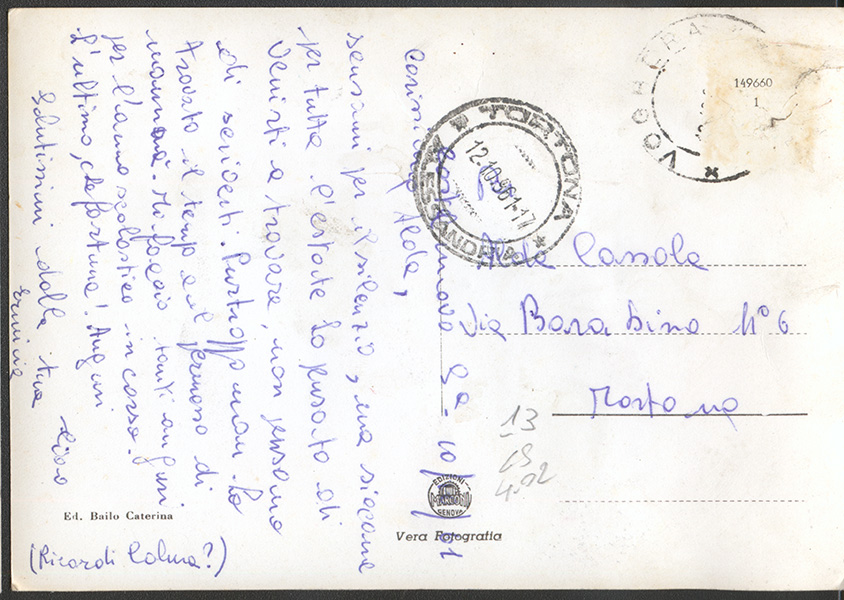 Castelnuovo 9-10/61
Carissima Alda,
scusami per il silenzio, ma siccome
per tutta l'estate ho pensato di
venirti a trovare, non pensavo
di scriverti. Purtroppo non ho
trovato il tempo e il permesso di
mamma. Ti faccio tanti auguri
per l'anno scolastico in corso.
L'ultimo, che fortuna! Auguri
Salutissimi dalla tua
Erminia
(Ricordi Colma?)
Ed. Bailo Caterina
Vera Fotografia
EDIZIONI
GENOVA
TORTONA
12.10.961.17
VOGHERA
149660
1
Alda Cassola
Via Bara Bino N° 6
Tortona
13
4.02